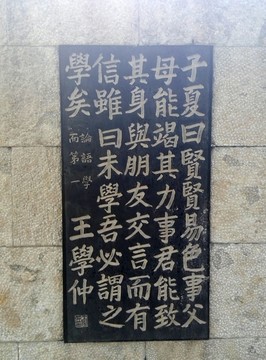 子夏曰賢賢易色事父
母能竭其力事君能致
其身與朋友交言而有
信雖曰未學吾必謂之
學矣
論語學
而第一
王學仲